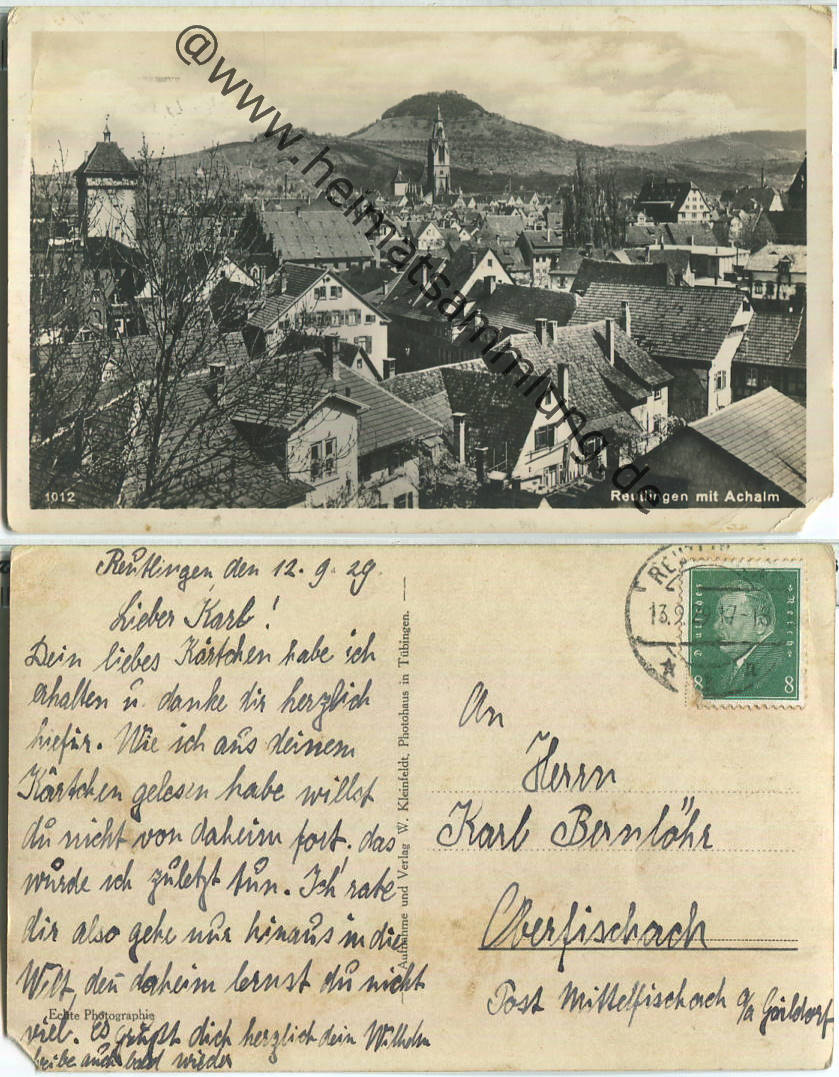 @www.heimatsammlung.de
1012
Reutlingen mit Achalm
Reutlingen, den 12.9.29.
Lieber Karl!
Dein liebes Kärtchen habe ich
erhalten u. danke dir herzlich
hiefür. Wie ich aus deinem
Kärtchen gelesen habe willst
du nicht von daheim fort, das
würde ich zuletzt tun. Ich rate
dir also gehe nur hinaus in die
Welt, den daheim lernst du nicht
viel. Es grüßt dich herzlich dein Wilhelm
schreibe auch bald wieder
Echte Photographie
Aufnahme und Verlag W. Kleinfeldt, Photohaus in Tübingen.
13.9. 17-18
Deutsches Reich
8 8
An
Herrn
Karl Bernlöhr
Oberfischach
Post Mittelfischach a/a Gaildorf